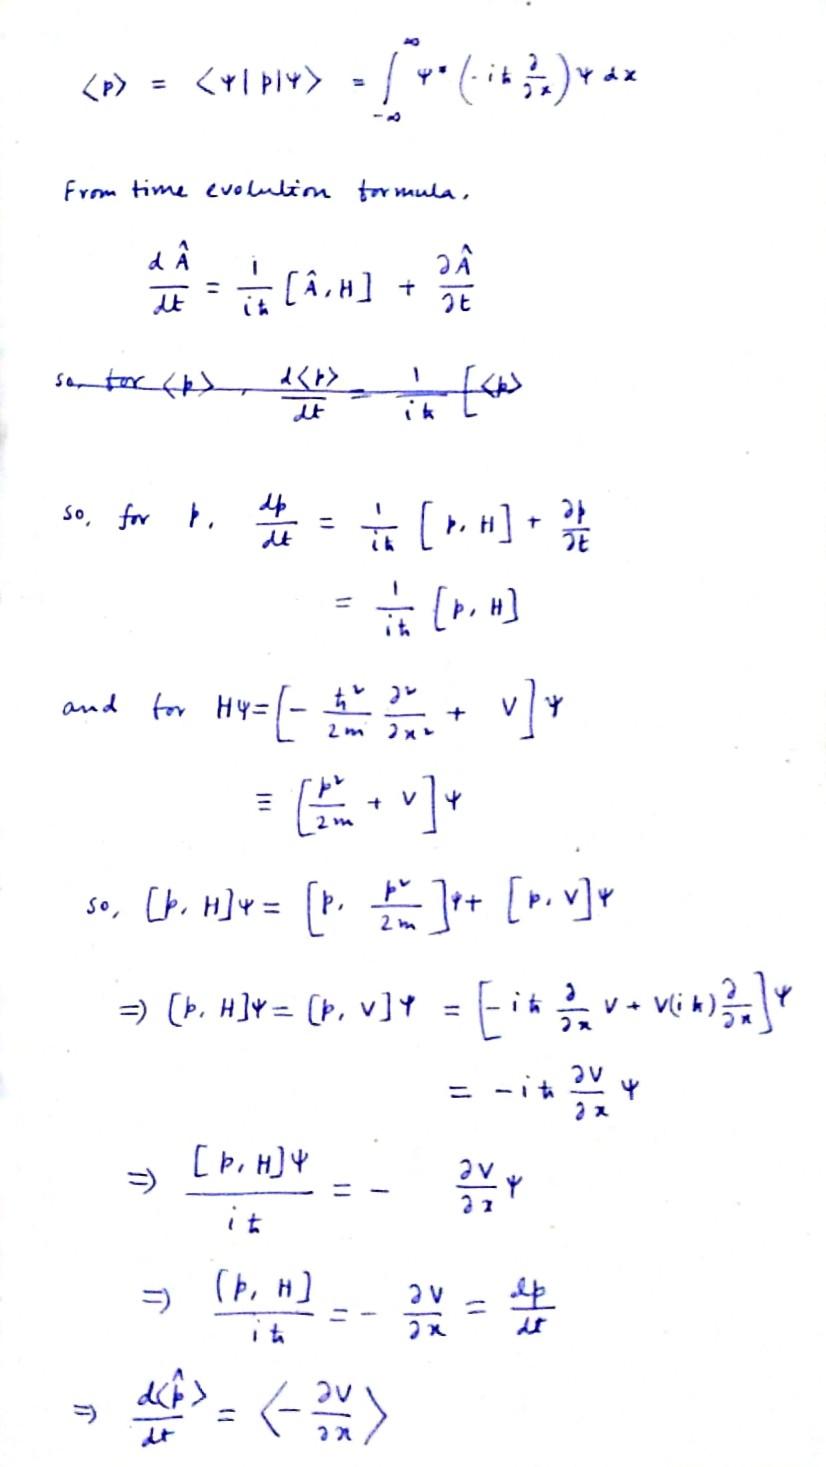 ⟨p⟩ = ⟨Ψ|p|Ψ⟩ = ∫_{-∞}^{∞} Ψ* (-iħ ∂/∂x) Ψ dx
From time evolution formula,
dÂ/dt = 1/iħ [Â, H] + ∂Â/∂t
so, for ⟨p⟩, d⟨p⟩/dt = 1/iħ [⟨p⟩
so, for p, dp/dt = 1/iħ [p, H] + ∂p/∂t
= 1/iħ [p, H]
and for HΨ = [- ħ²/2m ∂²/∂x² + V] Ψ
≡ [p²/2m + V] Ψ
so, [p, H]Ψ = [p, p²/2m]Ψ + [p, V]Ψ
⇒ [p, H]Ψ = [p, V]Ψ = [-iħ ∂/∂x V + V(iħ) ∂/∂x] Ψ
= -iħ ∂V/∂x Ψ
⇒ [p, H]Ψ/iħ = - ∂V/∂x Ψ
⇒ [p, H]/iħ = - ∂V/∂x = dp/dt
⇒ d⟨p̂⟩/dt = ⟨- ∂V/∂x⟩